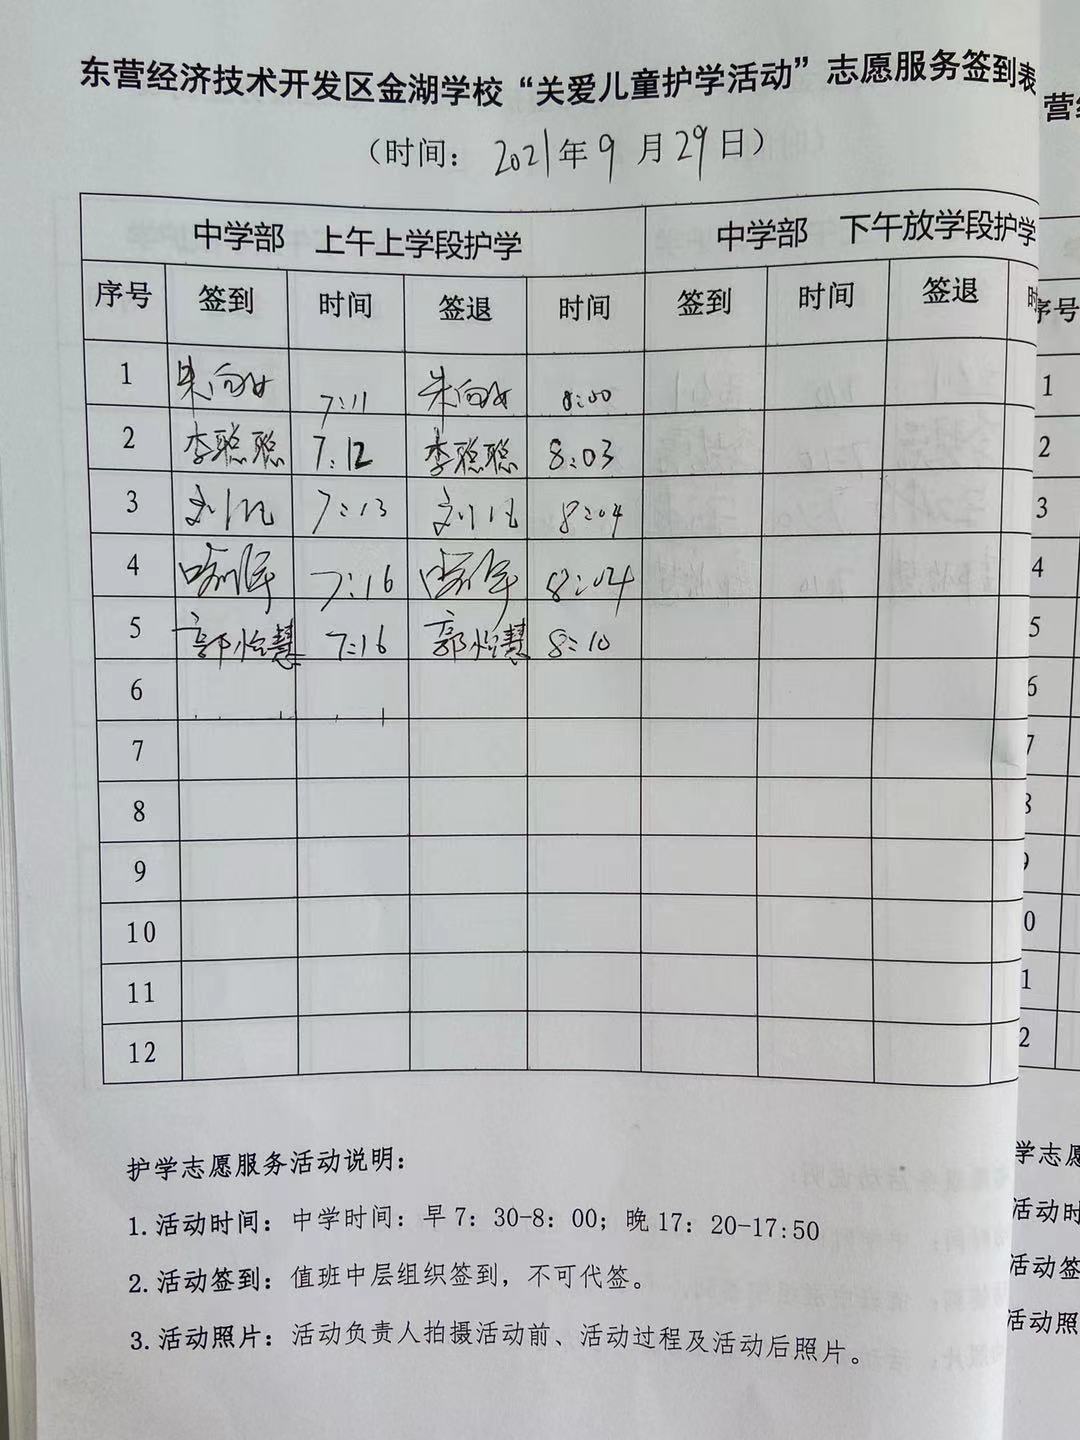 东营经济技术开发区金湖学校“关爱儿童护学活动”志愿服务签到表
（时间： 2021年 9 月 29 日）
中学部 上午上学段护学 中学部 下午放学段护学
序号 签到 时间 签退 时间 签到 时间 签退 时
1 朱向女 7:11 朱向女 8:00
2 李聪聪 7:12 李聪聪 8:03
3 7:13 8:04
4 7:16 8:04
5 郭怡慧 7:16 郭怡慧 8:10
6
7
8
9
10
11
12
护学志愿服务活动说明：
1.活动时间：中学时间：早7：30-8：00；晚17：20-17:50
2.活动签到：值班中层组织签到，不可代签。
3.活动照片：活动负责人拍摄活动前、活动过程及活动后照片。
营经
序号
1
2
3
4
5
6
7
8
9
0
1
2
学志愿
活动时
活动签
活动照